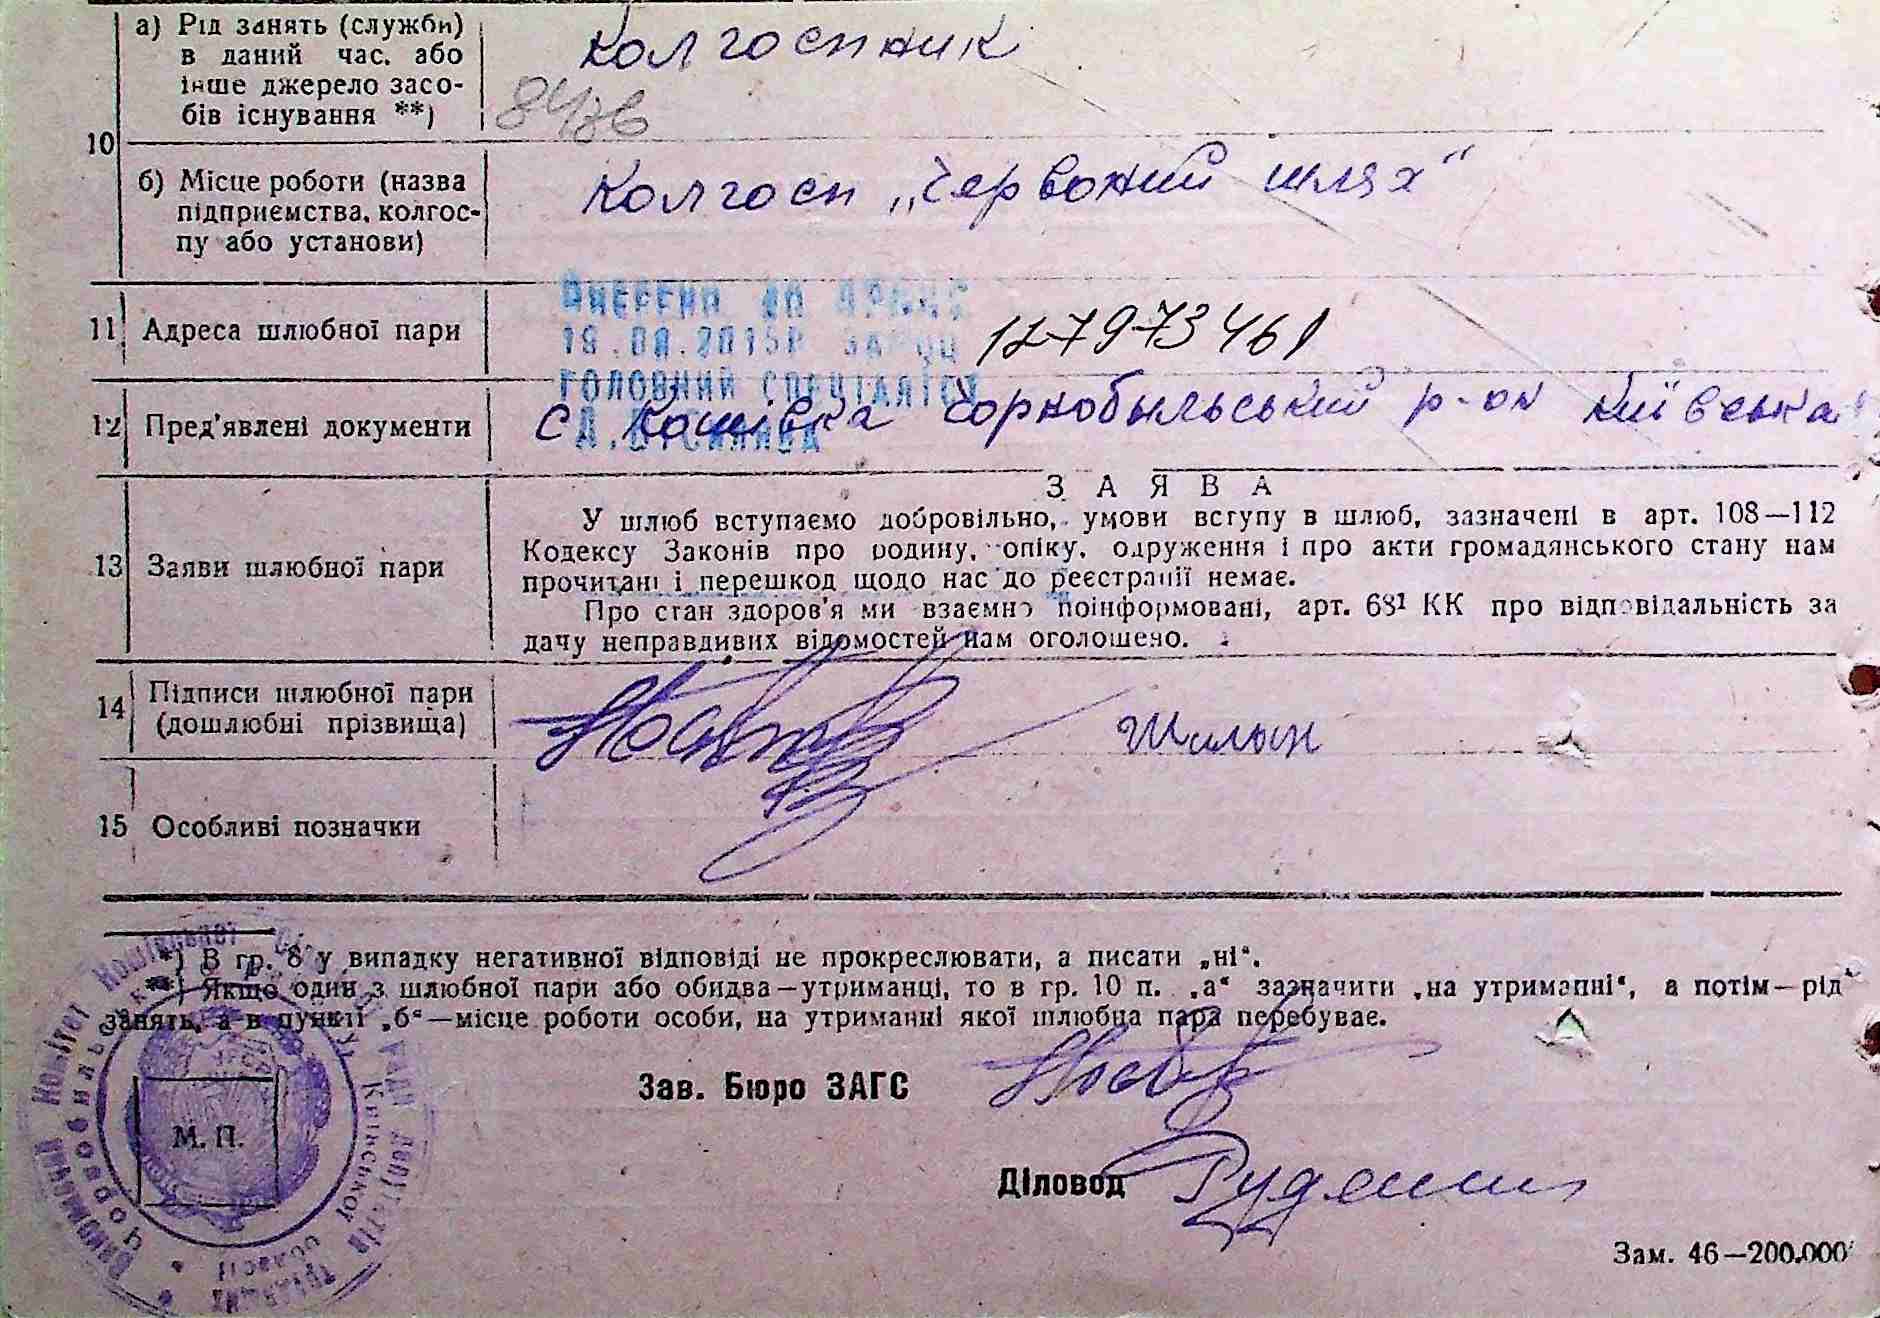 а) Рід занять (служби)
в даний час. або
інше джерело засо-
бів існування **)
колгоспник
10
б) Місце роботи (назва
підприємства, колгос-
пу або установи)
Колгосп „Червоний шлях“
Внесено до ДРАЦС
11 Адреса шлюбної пари
127973461
ГОЛОВНИЙ СПЕЦІАЛІСТ
12 Пред'явлені документи
с Кошівка Чорнобыльський р-он Київська
ЗАЯВА
13 Заяви шлюбної пари
У шлюб вступаємо добровільно, умови вступу в шлюб, зазначені в арт. 108—112
Кодексу Законів про родину, опіку, одруження і про акти громадянського стану нам
прочитані і перешкод щодо нас до реєстрації немає.
Про стан здоров'я ми взаємно поінформовані, арт. 68¹ КК про відповідальність за
дачу неправдивих відомостей нам оголошено.
14 Підписи шлюбної пари
(дошлюбні прізвища)
15 Особливі позначки
*) В гр. 8 у випадку негативної відповіді не прокреслювати, а писати „ні“.
**) Якщо один з шлюбної пари або обидва—утриманці, то в гр. 10 п. „а“ зазначити „на утриманні“, а потім—рід
занять, а в пункті „б“—місце роботи особи, на утриманні якої шлюбна пара перебуває.
Зав. Бюро ЗАГС
М. П.
Діловод
Зам. 46—200.000